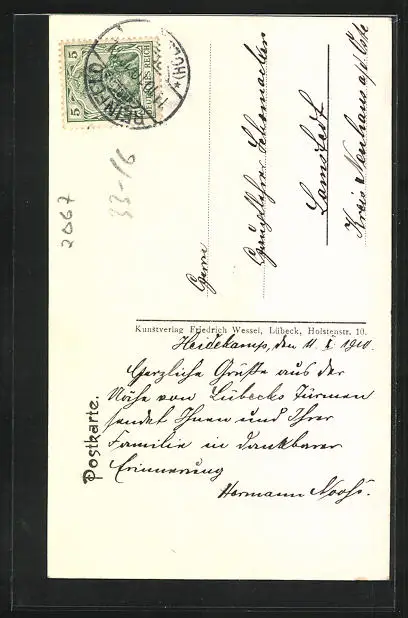 5 DEUTSCHES REICH 5
REINFELD
(HOLST)
2067
33-16
Postkarte.
Herrn
Hauptlehrer Schomacker
Lamstedt
Kreis Neuhaus a/Oste
Kunstverlag Friedrich Wessel, Lübeck, Holstenstr. 10.
Heidekamp, den 11. X. 1910.
Herzliche Grüße aus der
Nähe von Lübecks Türmen
sendet Ihnen und Ihrer
Familie in dankbarer
Erinnerung
Hermann